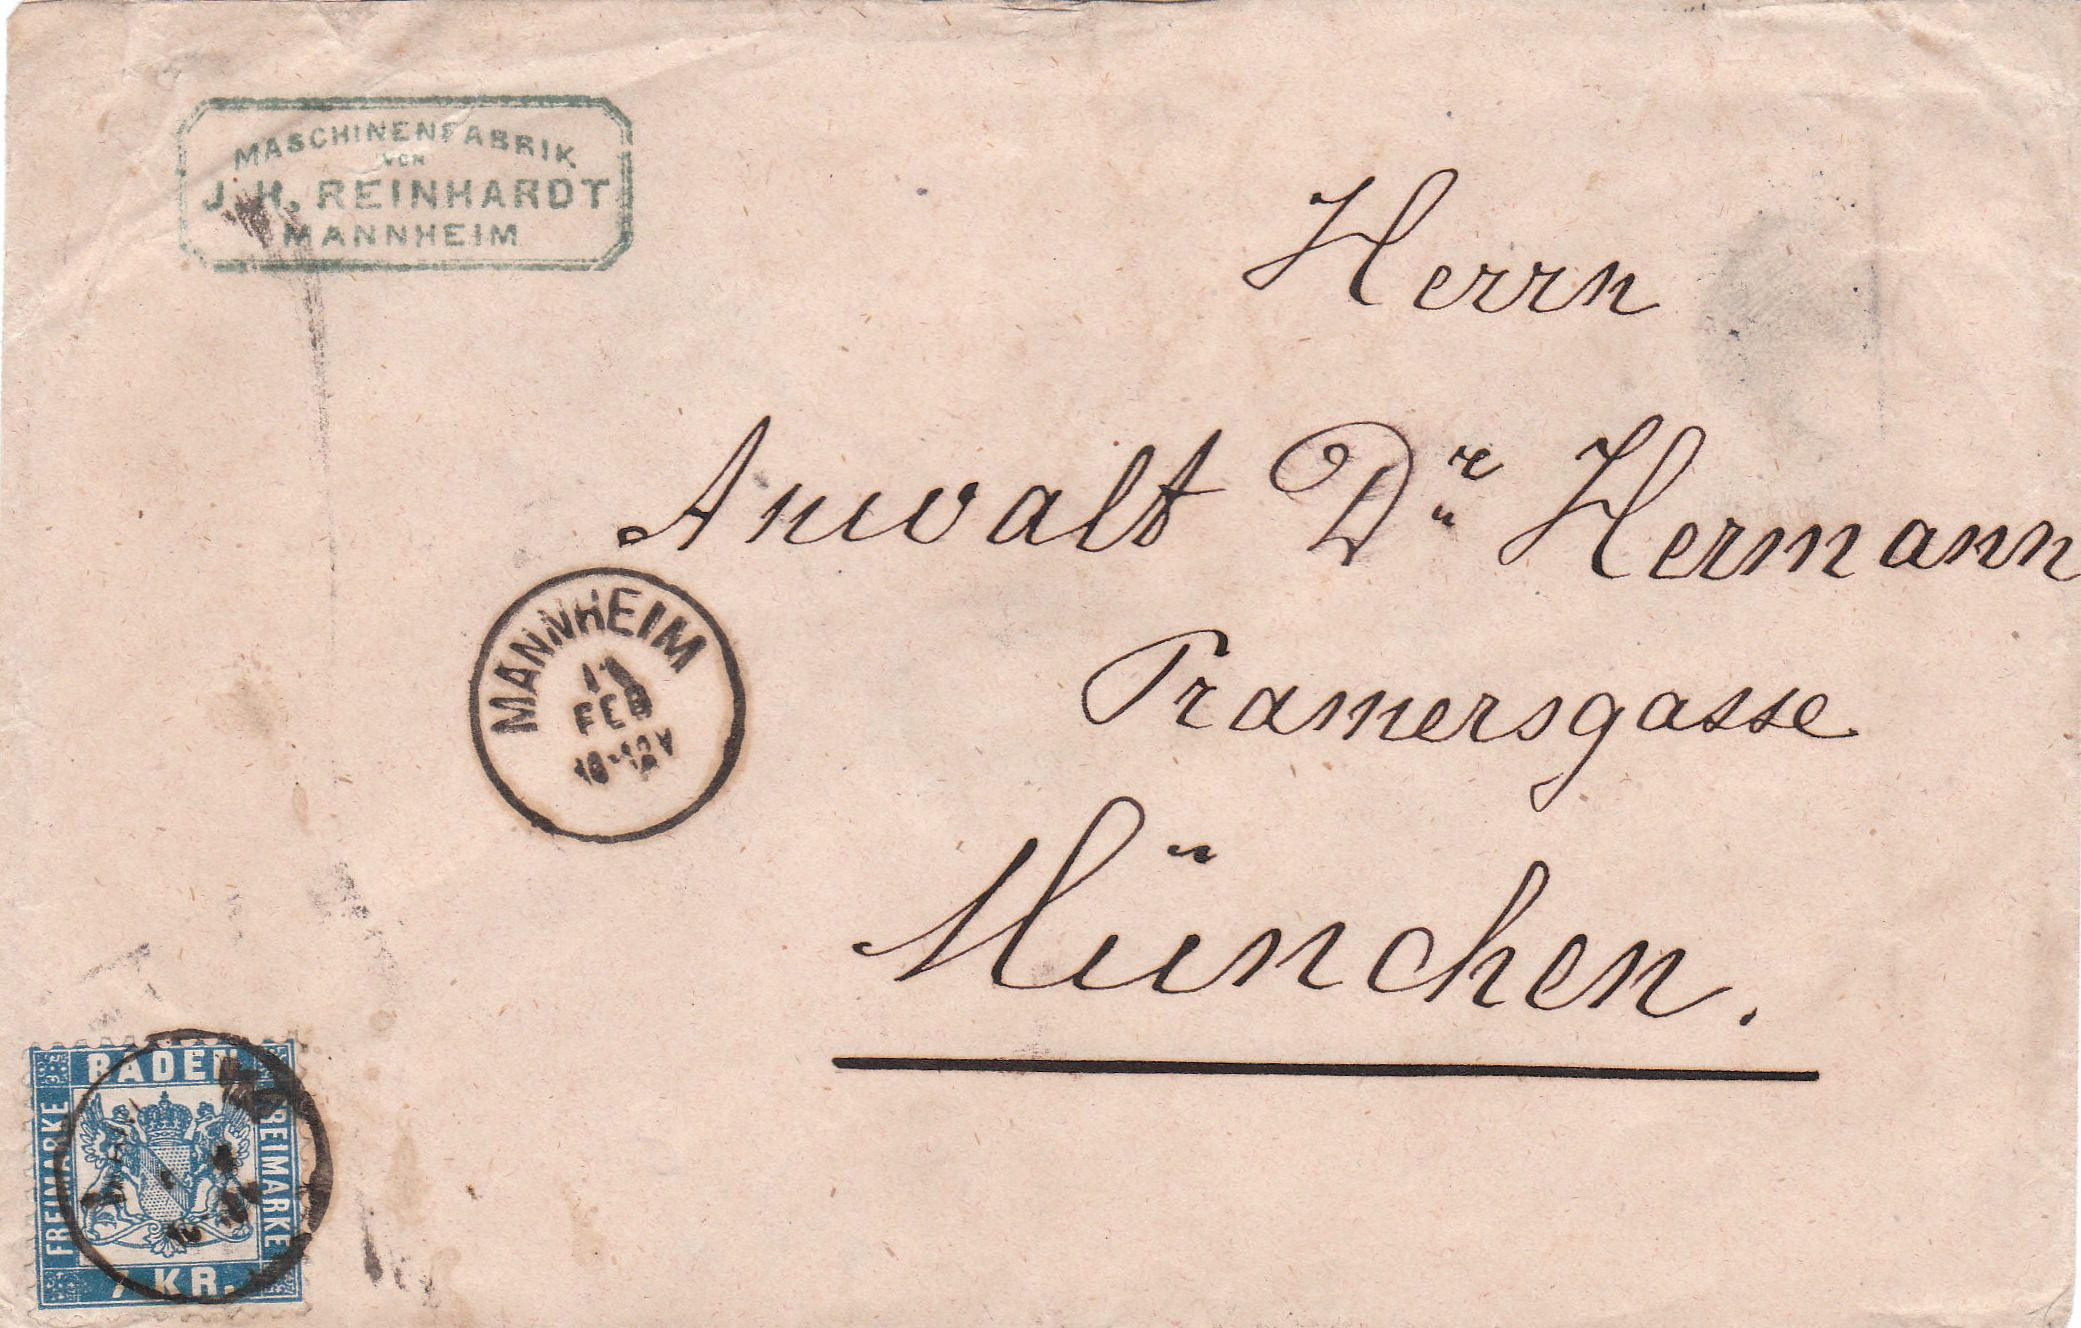 MASCHINENFABRIK
VON
J. H. REINHARDT
MANNHEIM
Herrn
Anwalt Dr Hermann
Pramersgasse
München.
MANNHEIM
FEB
BADEN
FREIMARKE
FREIMARKE
7 KR.